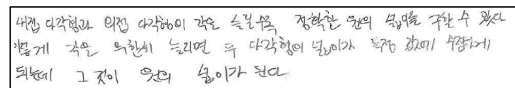 내접 다각형과 외접 다각형이 각을 늘릴수록 정확한 원의 넓이를 구할 수 있다
이렇게 각을 무한히 늘리면 두 다각형의 넓이가 특정 값에 수렴하게
되는데 그것이 원의 넓이가 된다